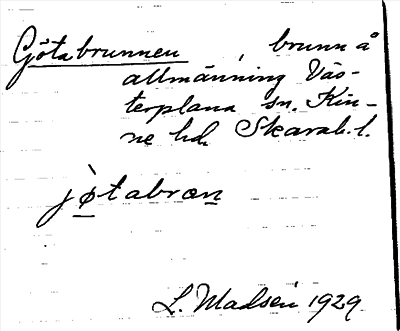 Götabrunnen, brunn å
allmänning Väs-
terplana sn. Kin-
ne hd. Skarab. l.
jø̀tabrœn
L. Madsén 1929